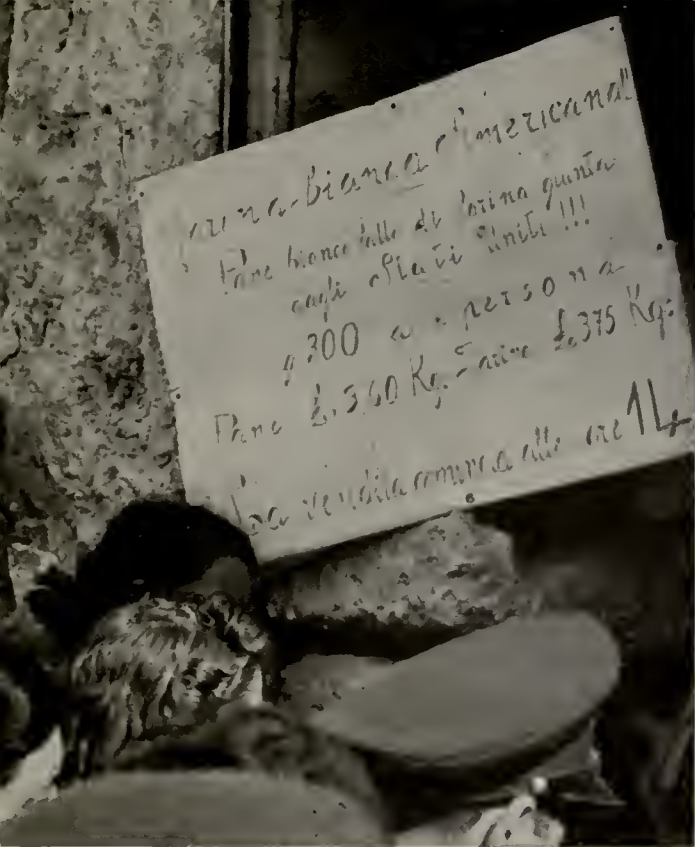 Farina-Bianca Americana!!
Pane bianco fatto di farina giunta
dagli Stati Uniti !!!
g 300 a persona
Pane £. 3,60 Kg. Farina £. 3,75 Kg:
La vendita comincia alle ore 14